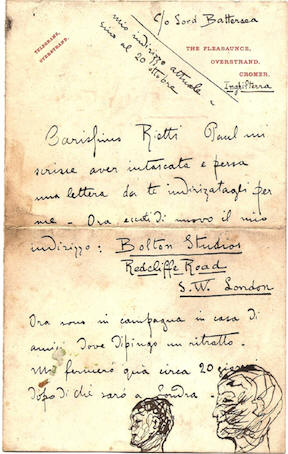 c/o Lord Battersea
TELEGRAMS,
OVERSTRAND.
mio indirizzo attuale
sino al 20 ottobre
THE PLEASAUNCE,
OVERSTRAND,
CROMER.
Inghilterra
Carissimo Rietti Paul mi
scrisse aver intascata e persa
una lettera da te indirizzatagli per
me - Ora eccoti di nuovo il mio
indirizzo: Bolton Studios
Redcliffe Road
S.W. London
Ora sono in campagna in casa di
amici dove dipingo un ritratto.
Mi fermerò quà circa 20 giorni
dopo di chè sarò a Londra -